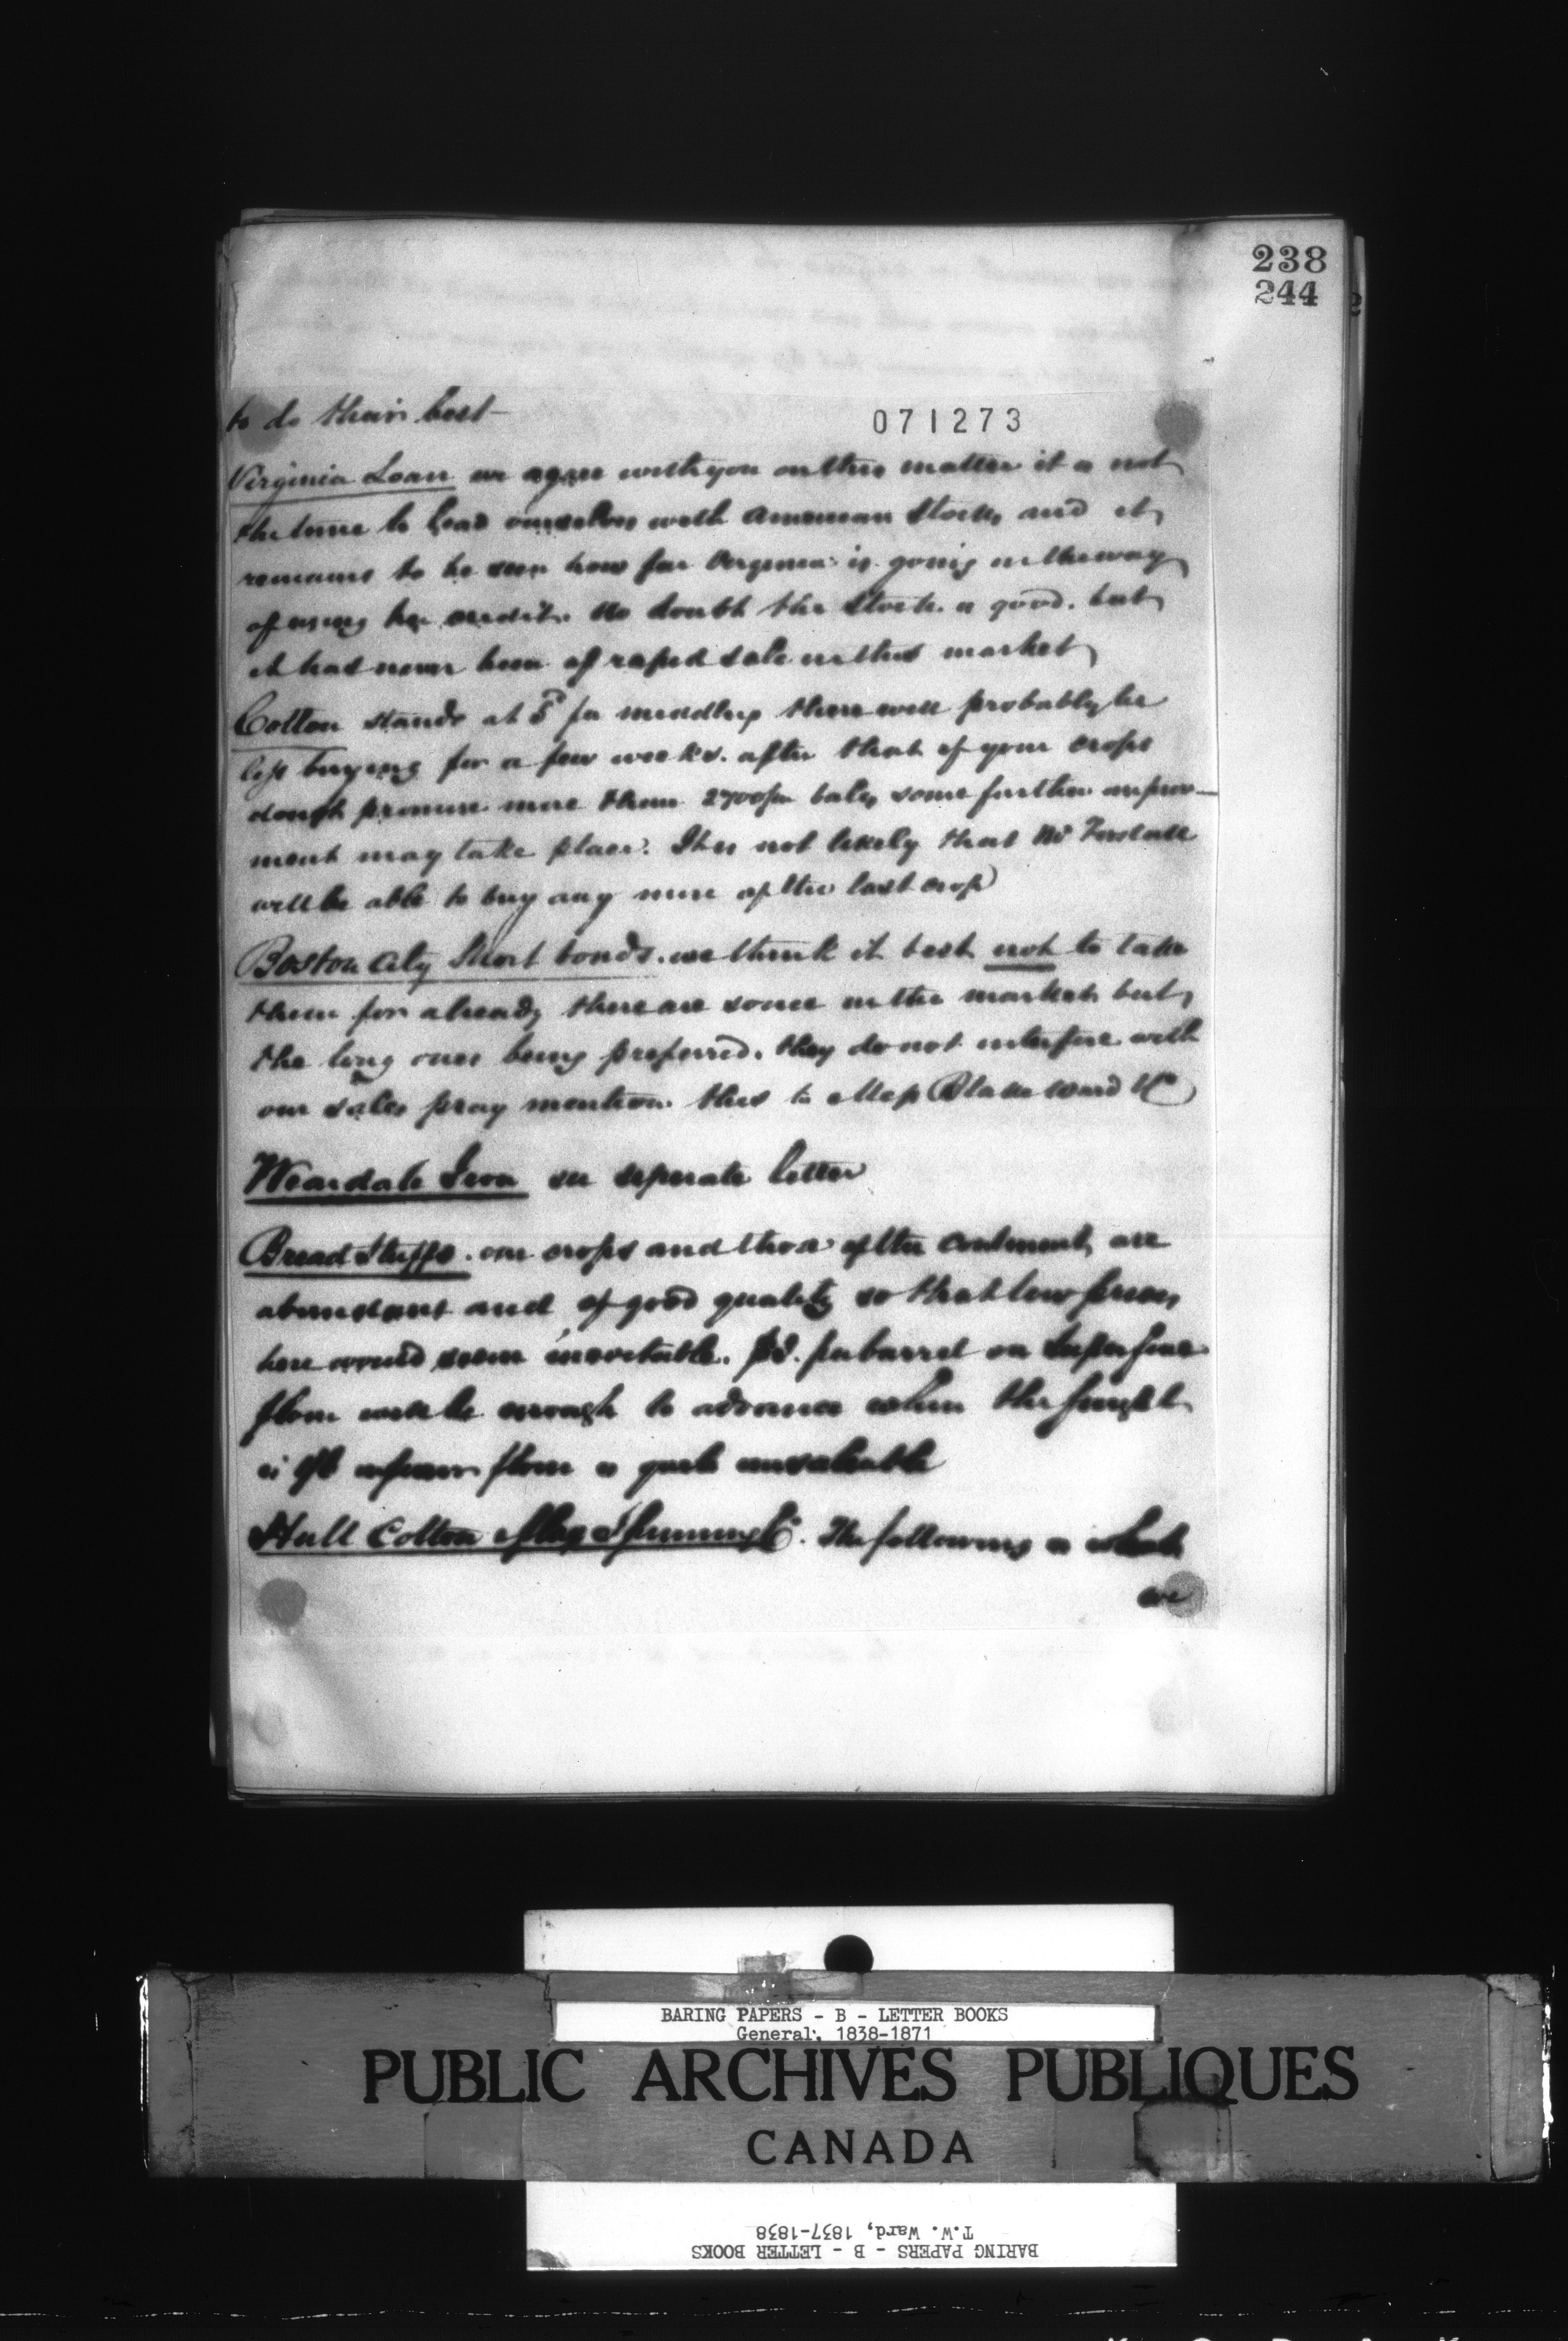 238
244
071273
to do their best—
Virginia Loan we agree with you on this matter it is not
the time to load ourselves with American Stocks, and it
remains to be seen how far Virginia is going in the way
of using her credit. No doubt the Stock is good. but
it has never been of rapid sale in this market
Cotton stands at 5d for middling there will probably be
less buying for a few weeks. after that if your crops
don't promise more than 2700/m bales some further improve-
ment may take place. It is not likely that Mr Forstall
will be able to buy any more of the last crop
Boston City Short bonds. we think it best not to take
them for already there are some in the market but,
the long ones being preferred. they do not interfere with
our sales pray mention this to Mess Blake Ward & Co
Weardale Iron see seperate letter
Bread Stuffs. our crops and those of the continent, are
abundant and of good quality so that low prices,
here would seem inevitable. per barrel on Superfine
flour will be enough to advance when the freight
is flour is quite unsaleable
Hull Cotton Flax Spinning Co. The following is what
we
BARING PAPERS - B - LETTER BOOKS
General, 1838-1871
PUBLIC ARCHIVES PUBLIQUES
CANADA
T.W. Ward, 1837-1838
BARING PAPERS - B - LETTER BOOKS